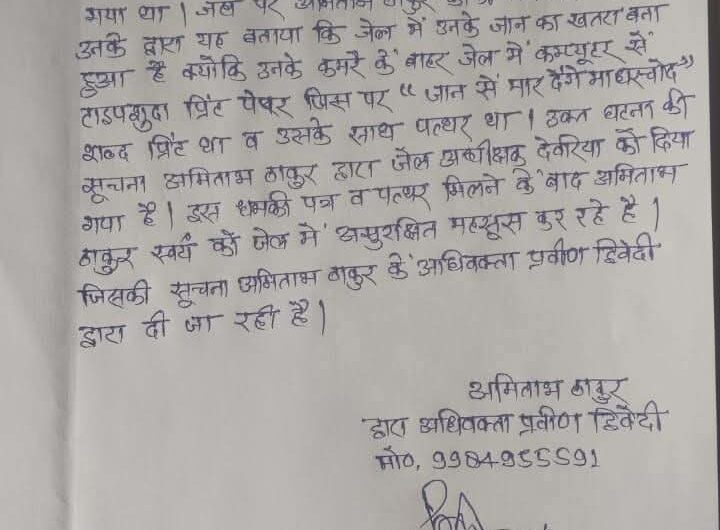 गया था। जेल पर अमिताभ ठाकुर
उनके द्वारा यह बताया कि जेल में उनके जान का खतरा बना
हुआ है क्योंकि उनके कमरे के बाहर जेल में कम्प्यूटर से
टाइपशुदा प्रिंट पेपर जिस पर "जान से मार देंगे माधरचोद"
शब्द प्रिंट था व उसके साथ पत्थर था। उक्त घटना की
सूचना अमिताभ ठाकुर द्वारा जेल अधीक्षक देवरिया को दिया
गया है। इस धमकी पत्र व पत्थर मिलने के बाद अमिताभ
ठाकुर स्वयं को जेल में असुरक्षित महसूस कर रहे है।
जिसकी सूचना अमिताभ ठाकुर के अधिवक्ता प्रवीण द्विवेदी
द्वारा दी जा रही है।
अमिताभ ठाकुर
द्वारा अधिवक्ता प्रवीण द्विवेदी
मो०, 9984955591